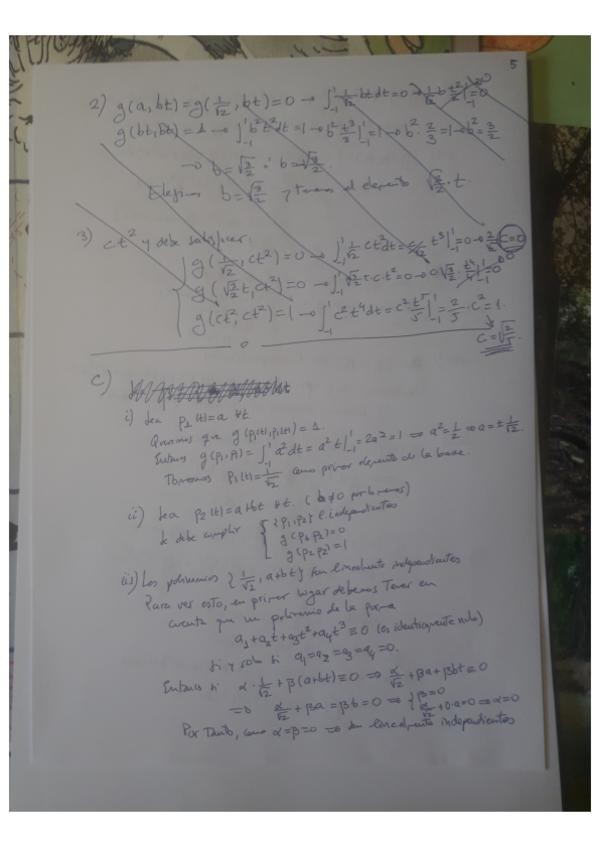 5
2) g(a, bt) = g(1/√2, bt) = 0 → ∫_{-1}^{1} 1/√2 bt dt = 0 → 1/√2 b t²/2 |_{-1}^{1} = 0
g(bt, bt) = 1 → ∫_{-1}^{1} b² t² dt = 1 → b² t³/3 |_{-1}^{1} = 1 → b² · 2/3 = 1 → b² = 3/2
Elegimos b = √3/2 y tenemos el elemento √3/2 · t
3) ct² y debe satisfacer:
g(1/√2, ct²) = 0 → ∫_{-1}^{1} 1/√2 ct² dt = t³ |_{-1}^{1} = 0 → c = 0
g(√3/2 t, ct²) = 0 → ∫_{-1}^{1} √3/2 t · c · t² = 0 → t⁴/4 |_{-1}^{1} = 0
g(ct², ct²) = 1 → ∫_{-1}^{1} c² t⁴ dt = c² t⁵/5 |_{-1}^{1} = 2/5 · c² = 1.
o
C)
i) Sea p₁(t) = a ∀t
Queremos que g(p₁(t), p₁(t)) = 1.
Entonces g(p₁, p₁) = ∫_{-1}^{1} a² dt = a² t |_{-1}^{1} = 2a² = 1 ⇒ a² = 1/2 ⇒ a = ± 1/√2.
Tomemos p₁(t) = 1/√2 como primer elemento de la base.
ii) Sea p₂(t) = a + bt ∀t. (b ≠ 0 por lo menos)
Se debe cumplir { {p₁, p₂} l. independientes
g(p₁, p₂) = 0
g(p₂, p₂) = 1
iii) Los polinomios {1/√2, a + bt} son linealmente independientes
Para ver esto, en primer lugar debemos tener en
cuenta que un polinomio de la forma
a₁ + a₂t + a₃t² + a₄t³ ≡ 0 (es idénticamente nulo)
si y solo si a₁ = a₂ = a₃ = a₄ = 0.
Entonces si α · 1/√2 + β(a + bt) ≡ 0 ⇒ α/√2 + βa + βbt ≡ 0
⇒ α/√2 + βa = βb = 0 ⇒ { β = 0
α/√2 + 0 · a = 0 ⇒ α = 0
Por tanto, como α = β = 0 ⇒ son linealmente independientes